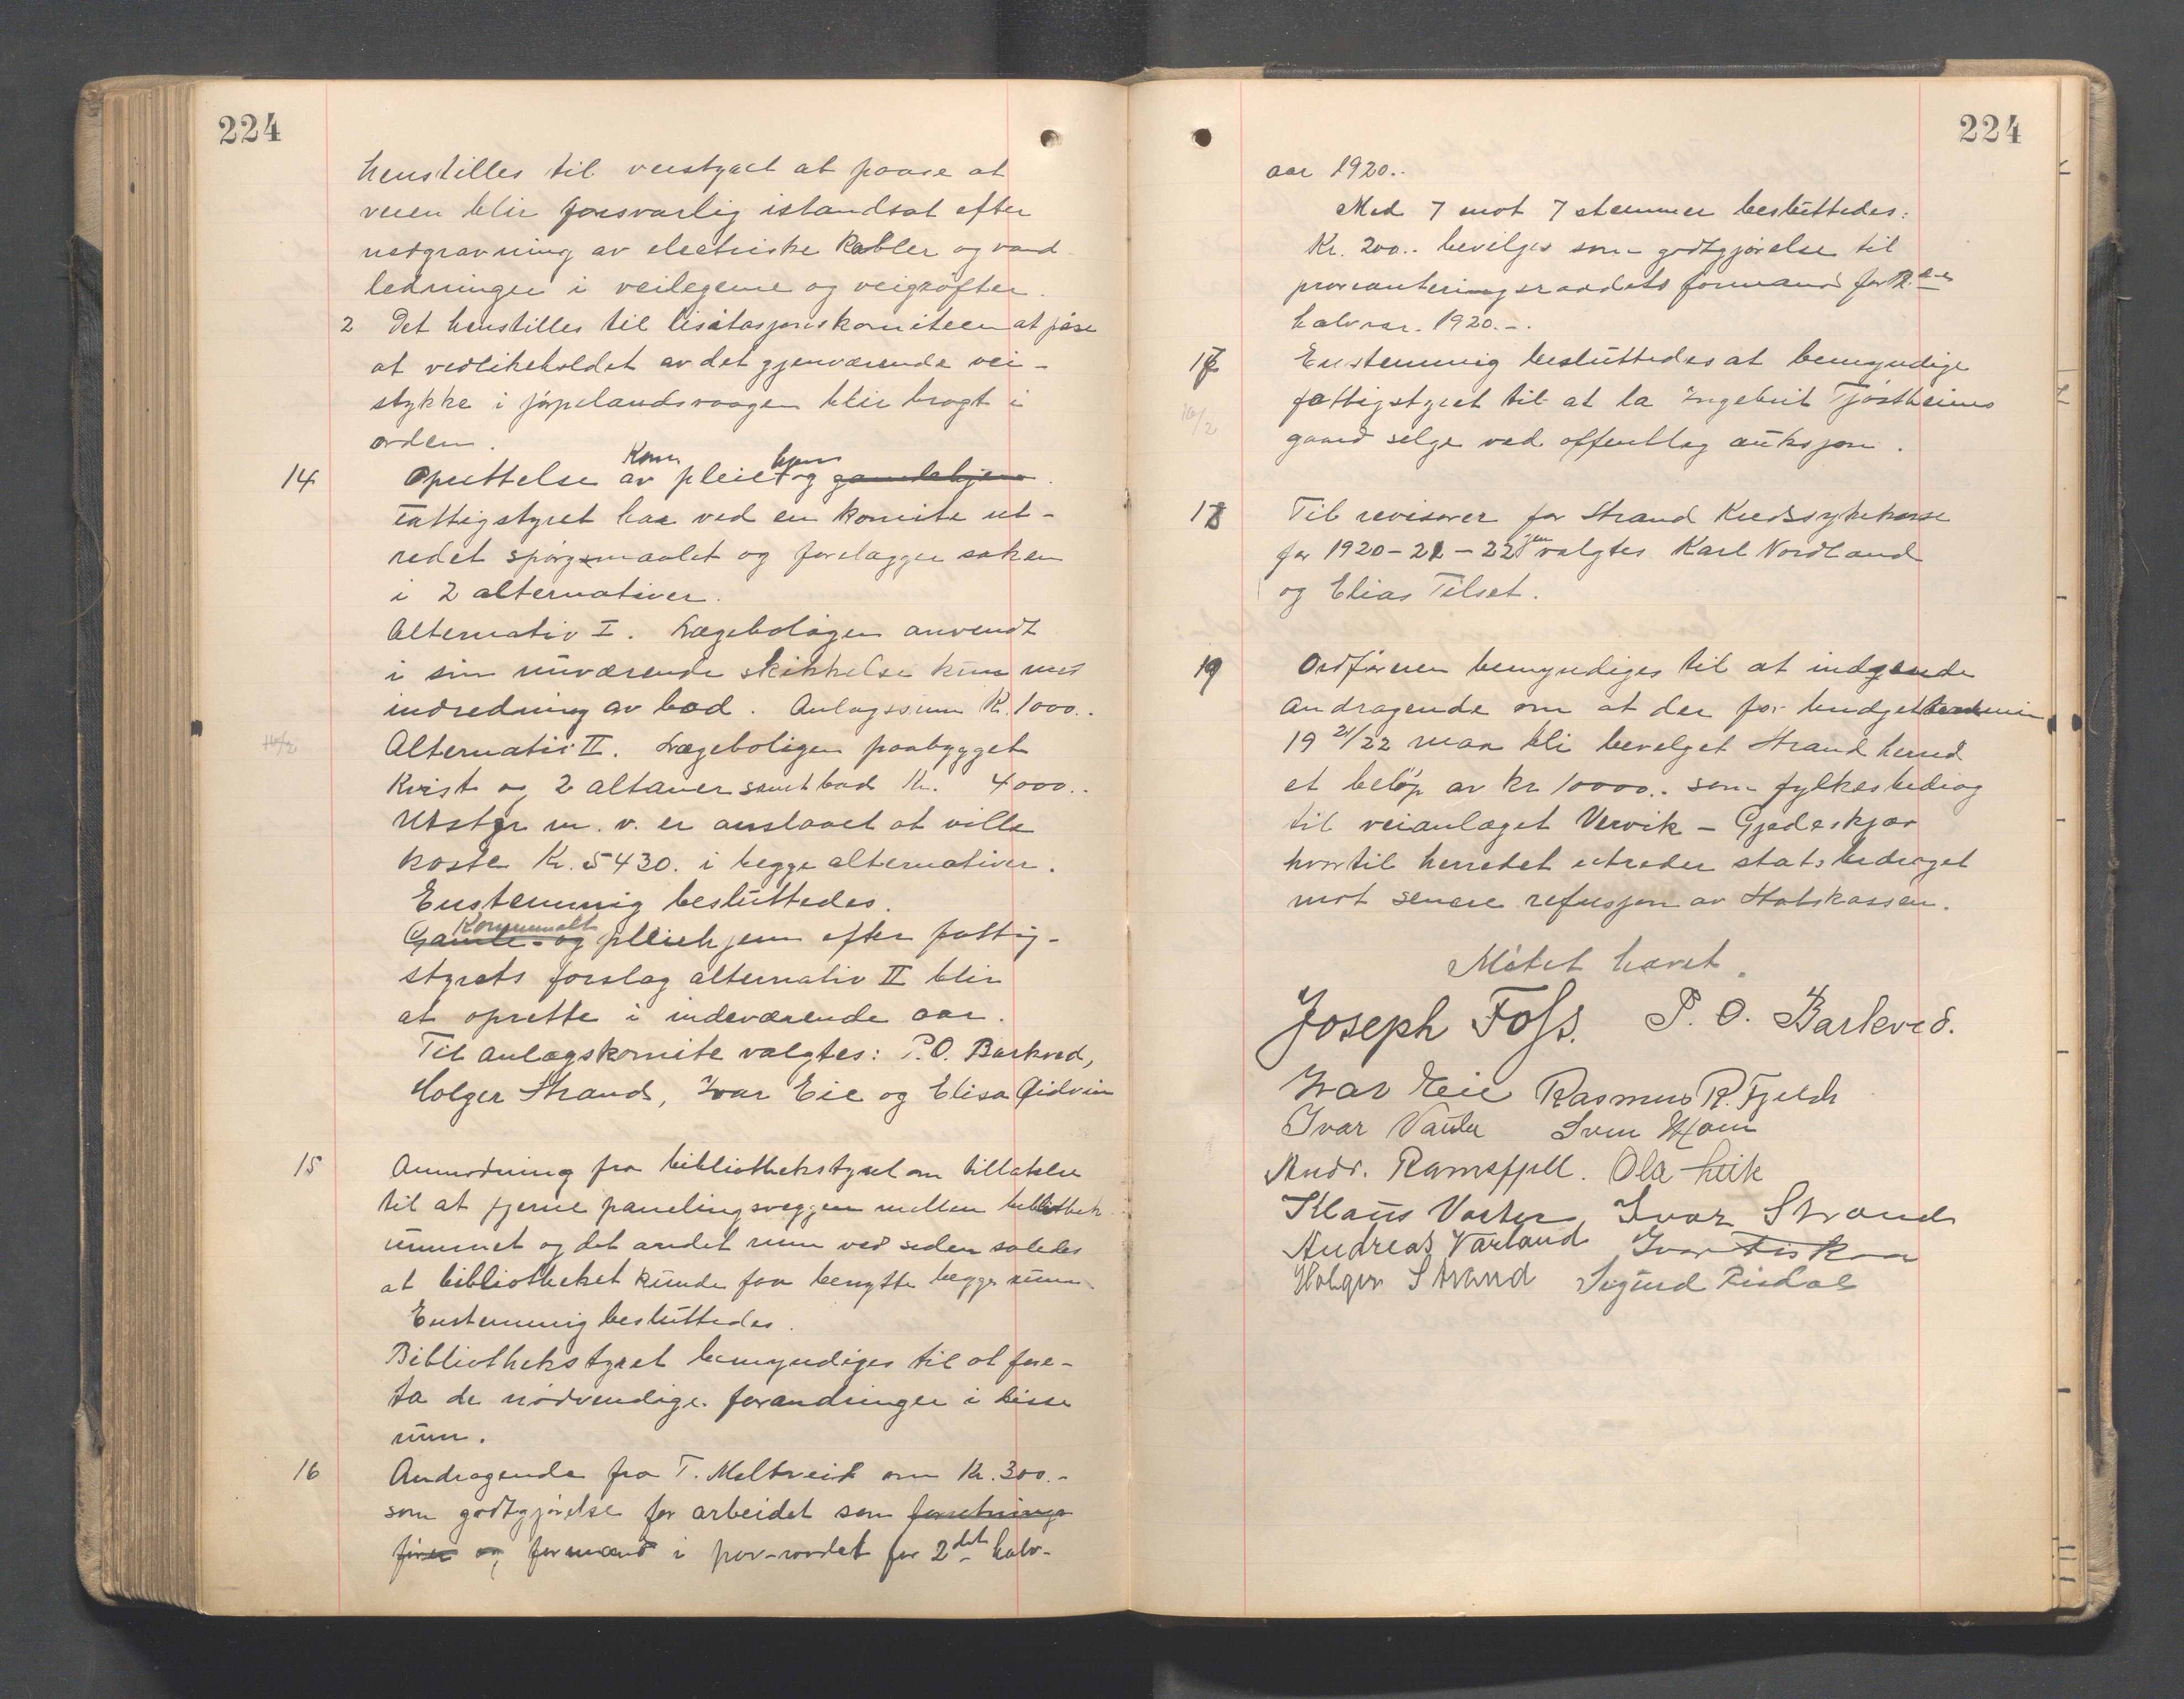 224
henstilles til veistyret at paase at
veien blir forsvarlig istandsat efter
nedgravning av electriske Kabler og vand
ledninger i veilegeme og veigrøfter.
2 Det henstilles til lisitasjonskomiteen at påse
at vedlikeholdet av det gjenværende vei-
stykke i jørpelandsvaagen blir bragt i
orden.
14 Oprettelse av Kom pleie hjem og gamlehjem.
Fattigstyret har ved en komite ut-
redet spørgsmaalet og forelægger saken
i 2 alternativer.
Alternativ I. Lægeboligen anvendt
i sin nuværende skikkelse kun med
indredning av bad. Anlagssum Kr. 1000..
Alternativ II. Lægeboligen paabygget
Kvist og 2 altaner samt bad Kr. 4000..
Utstyr m. v. er anslaaet at ville
koste Kr. 5430. i begge alternativer.
Enstemmig besluttedes.
Gamle- og Kommunalt pleiehjem efter fattig-
styrets forslag alternativ II blir
at oprette i indeværende aar.
Til anlægskomite valgtes: P.O. Barkved,
Holger Strand, Ivar Eie og Elisa
15 Anmodning fra bibliothekstyret om tillatelse
til at fjerne panelingsveggen mellem bibliothek
rummet og det andet rum ved siden saledes
at bibliotheket kunde faa benytte begge rum
Enstemmig besluttedes.
Bibliothekstyret bemyndiges til at fore-
ta de nødvendige forandringer i disse
rum.
16 Andragende fra T. Meltveit om Kr. 300.-
som godtgjørelse for arbeidet som forretnings
fører og formand i prov-raadet for 2det halv-
224
aar 1920..
Med 7 mot 7 stemmer besluttedes:
Kr. 200.. bevilges som godtgjørelse til
provianteringsraadets formand for
halvaar. 1920.-.
17 Enstemmig besluttedes at bemyndige
fattigstyret til at la Ingebrit Tjøstheims
gaard selge ved offentlig auksjon.
18 Til revisorer for Strand Kredssykekasse
for 1920-21-22 gjenvalgtes Karl Nordland
og Elias Tilset.
19 Ordføreren bemyndiges til at indsende
Andragende om at der for budgetterminen
19 21/22 maa bli bevilget Strand herred
et beløp av kr 10000.. som fylkesbidrag
til veianlæget Vervik - Gjedeskjær
hvortil herredet utreder statsbidraget
mot senere refusjon av Statskassen.
Møtet hævet.
Joseph Foss. P. O. Barkved.
Ivar Eie Rasmus R. Fjelde
Ivar Sven
Andr. Ramsfjell. Ola
Klaus Ivar Strand
Andreas Varland Ivar Fiskaa
Holger Strand Sigurd